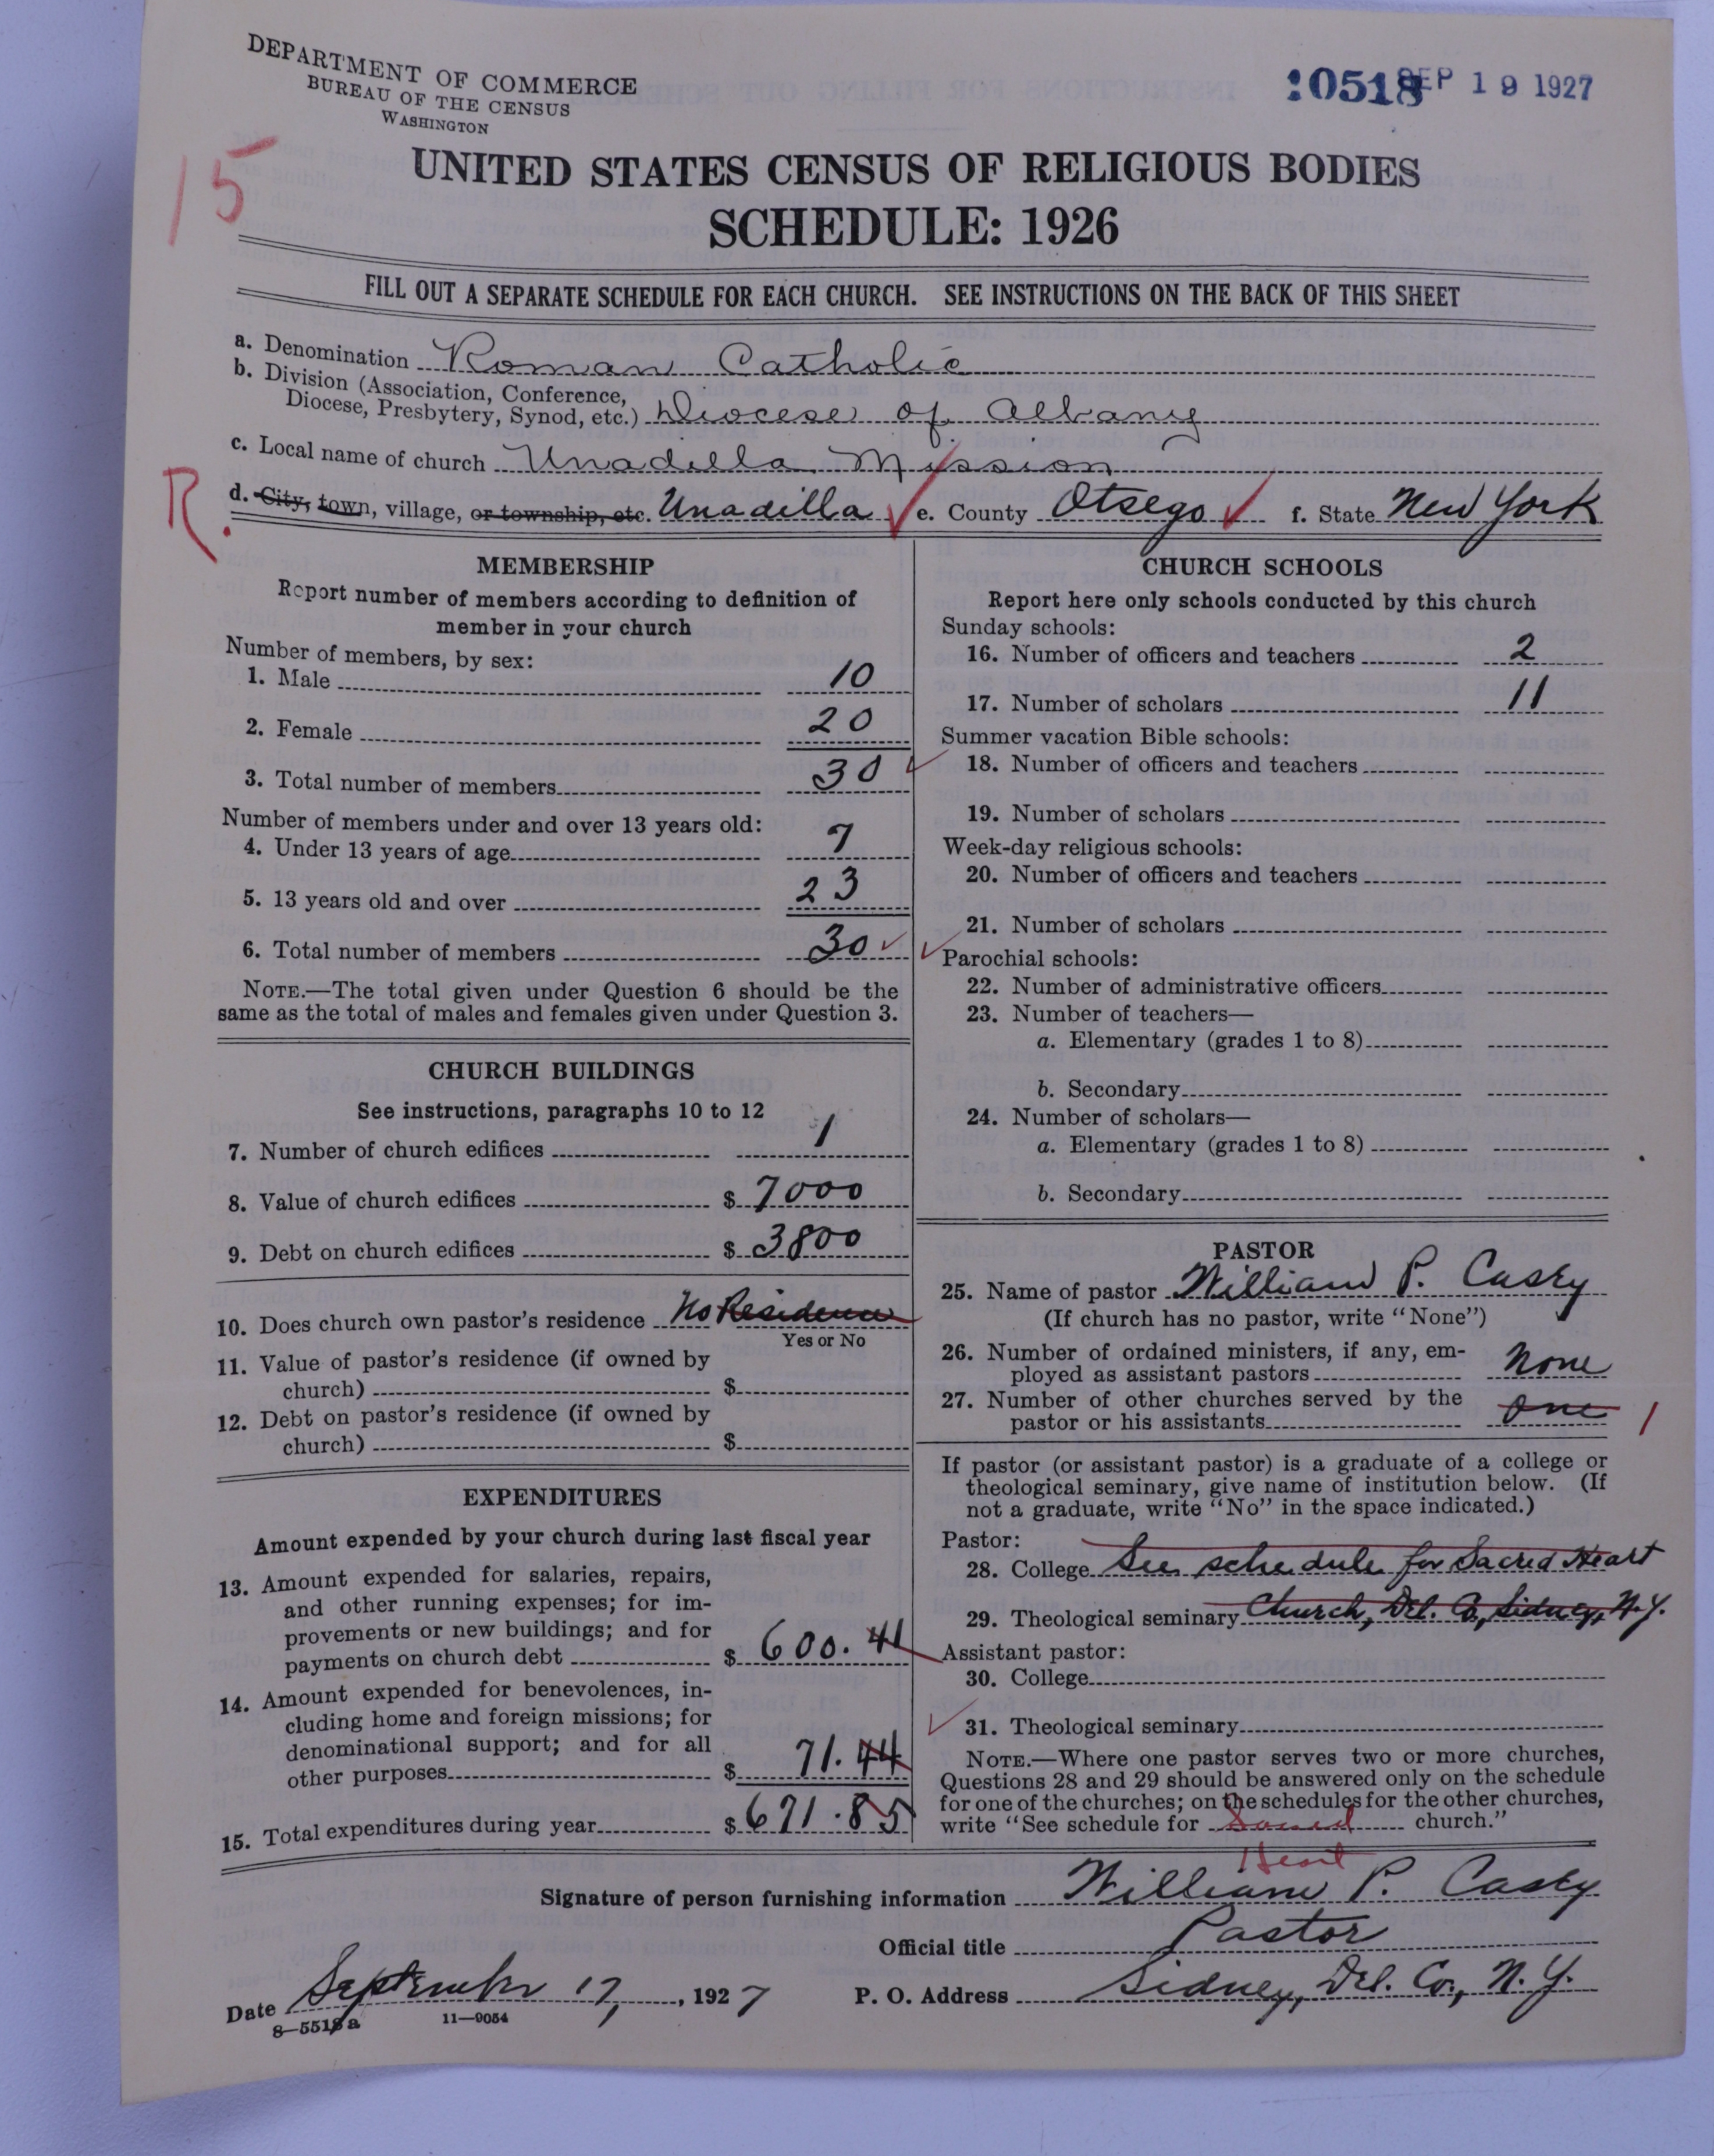 DEPARTMENT OF COMMERCE
BUREAU OF THE CENSUS
WASHINGTON
10518 SEP 19 1927
15
UNITED STATES CENSUS OF RELIGIOUS BODIES
SCHEDULE: 1926
FILL OUT A SEPARATE SCHEDULE FOR EACH CHURCH. SEE INSTRUCTIONS ON THE BACK OF THIS SHEET
a. Denomination Roman Catholic
b. Division (Association, Conference,
Diocese, Presbytery, Synod, etc.) Diocese of Albany
c. Local name of church Unadilla Mission
R.
d. City, town, village, or township, etc. Unadilla e. County Otsego f. State New York
MEMBERSHIP
Report number of members according to definition of
member in your church
Number of members, by sex:
1. Male 10
2. Female 20
3. Total number of members 30
Number of members under and over 13 years old:
4. Under 13 years of age 7
5. 13 years old and over 23
6. Total number of members 30
NOTE.—The total given under Question 6 should be the
same as the total of males and females given under Question 3.
CHURCH BUILDINGS
See instructions, paragraphs 10 to 12
7. Number of church edifices 1
8. Value of church edifices $ 7000
9. Debt on church edifices $ 3800
10. Does church own pastor's residence No Residence
Yes or No
11. Value of pastor's residence (if owned by
church) $
12. Debt on pastor's residence (if owned by
church) $
EXPENDITURES
Amount expended by your church during last fiscal year
13. Amount expended for salaries, repairs,
and other running expenses; for im-
provements or new buildings; and for
payments on church debt $ 600.41
14. Amount expended for benevolences, in-
cluding home and foreign missions; for
denominational support; and for all
other purposes $ 71.44
15. Total expenditures during year $ 671.85
CHURCH SCHOOLS
Report here only schools conducted by this church
Sunday schools:
16. Number of officers and teachers 2
17. Number of scholars 11
Summer vacation Bible schools:
18. Number of officers and teachers
19. Number of scholars
Week-day religious schools:
20. Number of officers and teachers
21. Number of scholars
Parochial schools:
22. Number of administrative officers
23. Number of teachers—
a. Elementary (grades 1 to 8)
b. Secondary
24. Number of scholars—
a. Elementary (grades 1 to 8)
b. Secondary
PASTOR
25. Name of pastor William P. Casey
(If church has no pastor, write "None")
26. Number of ordained ministers, if any, em-
ployed as assistant pastors None
27. Number of other churches served by the
pastor or his assistants One 1
If pastor (or assistant pastor) is a graduate of a college or
theological seminary, give name of institution below. (If
not a graduate, write "No" in the space indicated.)
Pastor:
28. College See schedule for Sacred Heart
29. Theological seminary Church, Del. Co., Sidney, N.Y.
Assistant pastor:
30. College
31. Theological seminary
NOTE.—Where one pastor serves two or more churches,
Questions 28 and 29 should be answered only on the schedule
for one of the churches; on the schedules for the other churches,
write "See schedule for Sacred church."
Heart
Signature of person furnishing information William P. Casey
Official title Pastor
Date September 17, 1927 P. O. Address Sidney, Del. Co., N.Y.
8—5518 a 11—9054